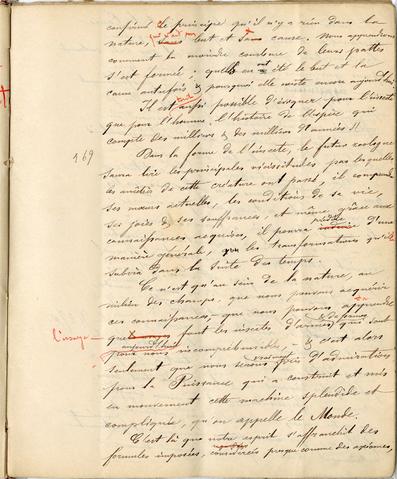 confirmé le principe qu'il n'y a rien dans la
nature, qui n'ait son but et sa cause. Nous apprendrons
comment la moindre courbure de leurs pattes
s'est formée, quelle en ont été le but et la
cause autrefois & pourquoi elle existe encore aujourd'hui.
Il est aussi tout possible d'esquisser pour l'insecte
que pour l'homme l'histoire de l'espèce qui
compte des millions & des millions d'années !!
169
Dans la forme de l'insecte, le futur zoologue
saura lire les principales vicissitudes par lesquelles
les ancêtres de cette créature ont passé, il comprendra
ses mœurs actuelles, les conditions de sa vie,
ses joies & ses souffrances, et même, grâce aux
connaissances acquises, il pourra prédire d'une
manière générale, les transformations qu'il
subira dans la suite des temps.
Ce n'est qu'au sein de la nature, au
milieu des champs, que nous pouvons acquérir
ces connaissances, que nous pouvons apprendre
l'usage que font les insectes d'armes & de formes qui sont
aujourd'hui pour nous incompréhensibles, & c'est alors
seulement que nous serons vraiment pris d'admiration
pour la Puissance qui a construit et mis
en mouvement cette machine splendide et
compliquée, qu'on appelle le Monde.
C'est là que notre esprit s'affranchit des
formules imposées, considérées presque comme des axiomes,